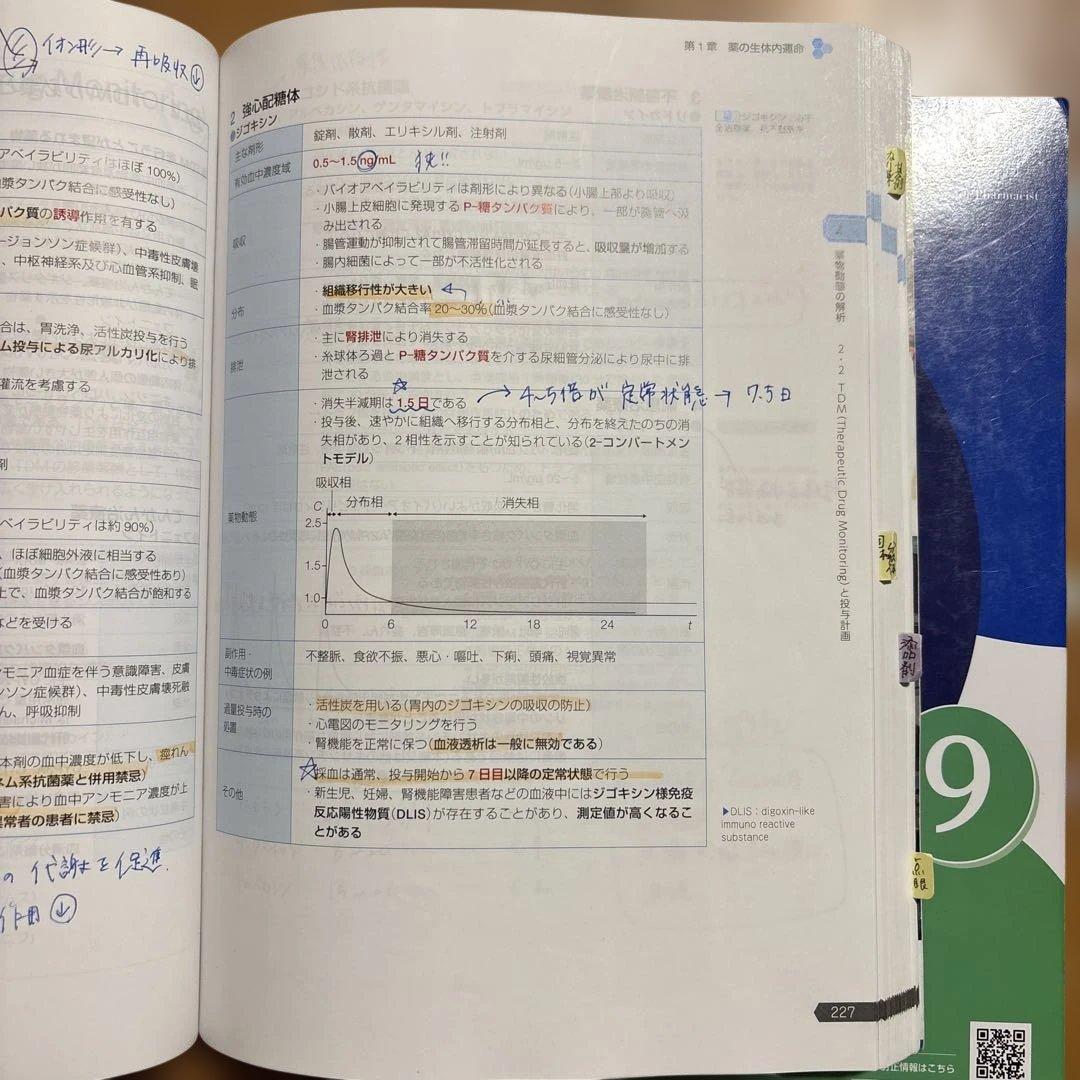 イオン形→ 再吸収↓
アベイラビリティはほぼ 100%)
血漿タンパク結合に感受性なし)
パク質の誘導作用を有する
ージョンソン症候群)、中毒性皮膚壊
、中枢神経系及び心血管系抑制、眠
合は、胃洗浄、活性炭投与を行う
ム投与による尿アルカリ化により排
灌流を考慮する
剤
ベイラビリティは約 90%)
、ほぼ細胞外液に相当する
(血漿タンパク結合に感受性あり)
上で、血漿タンパク結合が飽和する
などを受ける
ンモニア血症を伴う意識障害、皮膚
ンソン症候群)、中毒性皮膚壊死融
ん、呼吸抑制
本剤の血中濃度が低下し、痙れん
ネム系抗菌薬と併用禁忌)
害により血中アンモニア濃度が上
異常者の患者に禁忌)
の 代謝を促進.
作用↓
第1章 薬の生体内運命
2 強心配糖体
●ジゴキシン
主な剤形
錠剤、散剤、エリキシル剤、注射剤
有効血中濃度域
0.5〜1.5 ng/mL
吸収
・バイオアベイラビリティは剤形により異なる(小腸上部より吸収)
・小腸上皮細胞に発現する P-糖タンパク質により、一部が管腔へ汲
み出される
・腸管運動が抑制されて腸管滞留時間が延長すると、吸収量が増加する
・腸内細菌によって一部が不活性化される
分布
・組織移行性が大きい
・血漿タンパク結合率 20〜30%(血漿タンパク結合に感受性なし)
排泄
・主に腎排泄により消失する
・糸球体ろ過と P-糖タンパク質を介する尿細管分泌により尿中に排
泄される
薬物動態
・消失半減期は 1.5 日である
→ 4〜5倍が 定常状態→ 7.5日
・投与後、速やかに組織へ移行する分布相と、分布を終えたのちの消
失相があり、2 相性を示すことが知られている(2-コンパートメン
トモデル)
吸収相
分布相
消失相
C
2.5
1.5
1.0
0 6 12 18 24 t
副作用・
中毒症状の例
不整脈、食欲不振、悪心・嘔吐、下痢、頭痛、視覚異常
過量投与時の
処置
・活性炭を用いる(胃内のジゴキシンの吸収の防止)
・心電図のモニタリングを行う
・腎機能を正常に保つ(血液透析は一般に無効である)
その他
・採血は通常、投与開始から 7 日目以降の定常状態で行う
・新生児、妊婦、腎機能障害患者などの血液中にはジゴキシン様免疫
反応陽性物質(DLIS)が存在することがあり、測定値が高くなるこ
とがある
▶DLIS : digoxin-like
immuno reactive
substance
2
薬物動態の解析
2・2 TDM(Therapeutic Drug Monitoring)と投与計画
点眼
227
9